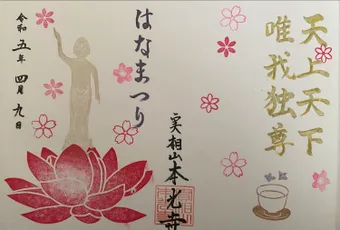 天上天下
唯我独尊
実相山本光寺
はなまつり
令和五年四月九日